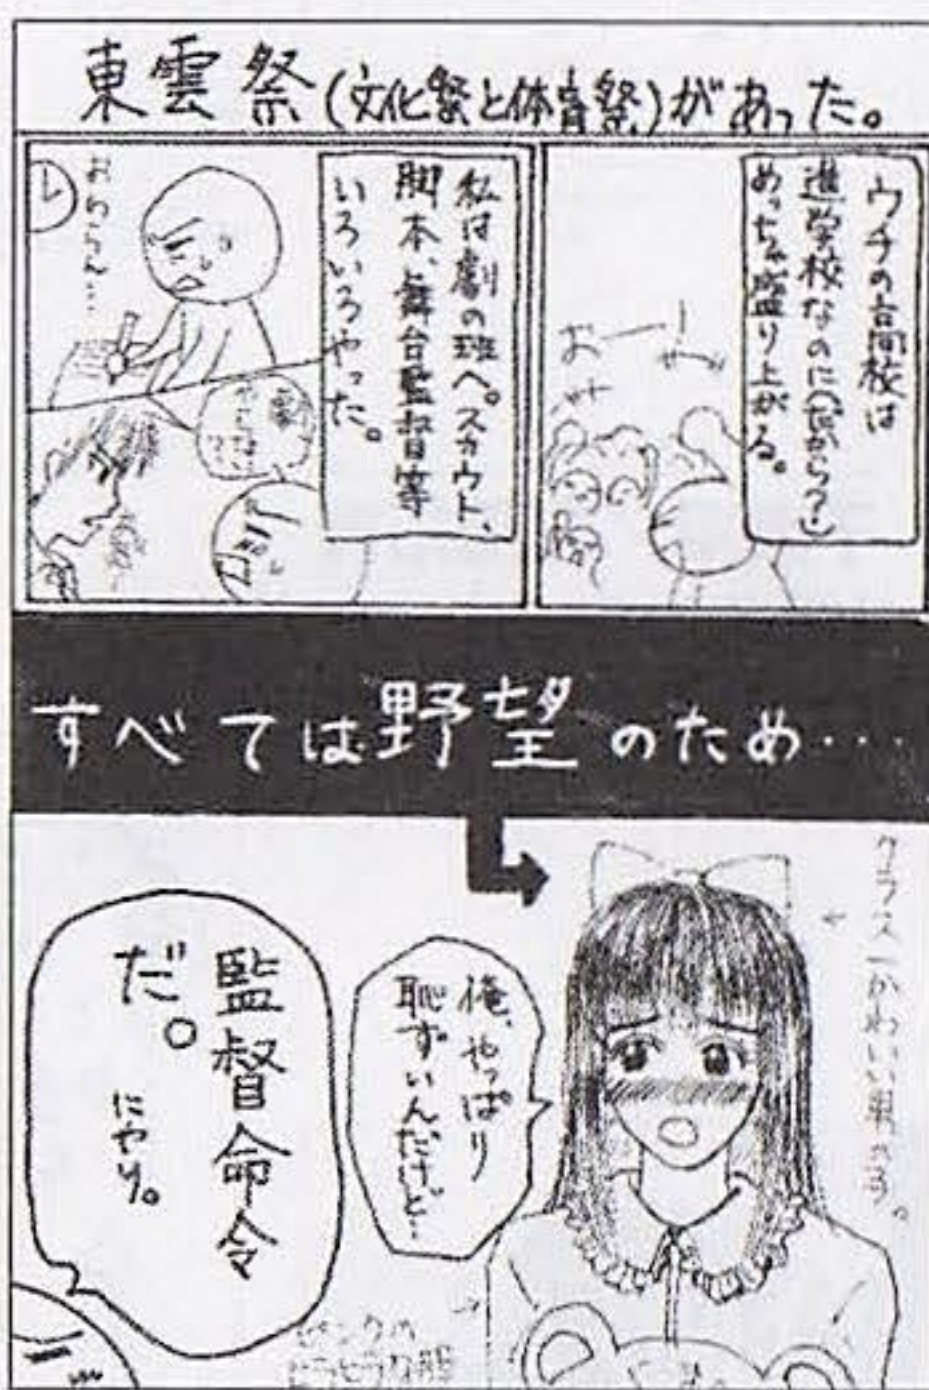 東雲祭(文化祭と体育祭)があった。
ウチの高校は
進学校なのに(だから?)
めっちゃ盛り上がる。
おーー!
私は劇の班へ。スカウト、
脚本、舞台監督等
いろいろやった。
おわらん…
すべては野望のため…
クラス一かわいい男の子。
俺、やっぱり
恥ずいんだけど…
監督命令
だ。
にやり。
ピンクの
ヒラヒラな服